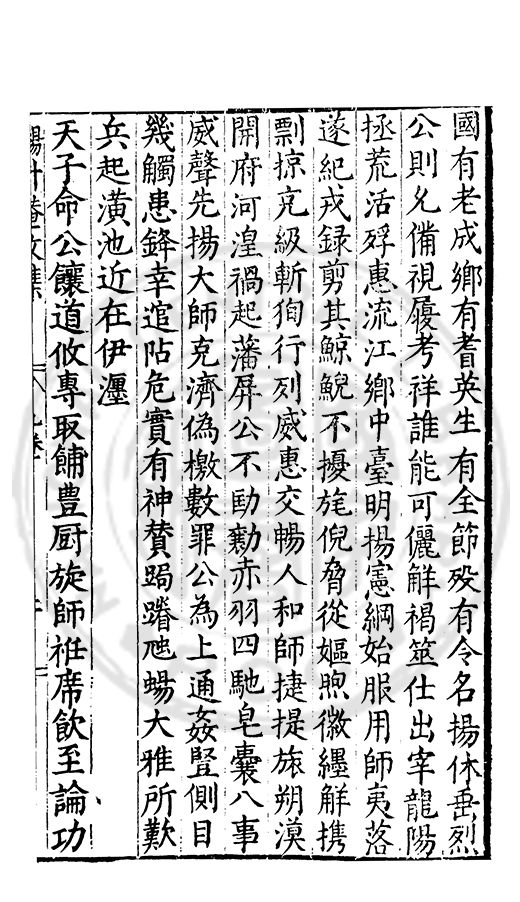 國有老成鄉有耆英生有全節歿有令名揚休垂烈
公則允備視履考祥誰能可儷觧褐筮仕出宰龍陽
拯荒活殍惠流江鄉中臺明揚憲綱始服用師夷落
遂紀戎録剪其鯨鯢不擾旄倪脅從嫗煦徽纆觧携
剽掠克級斬狥行列威惠交暢人和師捷提旅朔漠
開府河湟禍起藩屏公不動勷赤羽四馳皂囊八事
威聲先揚大師克濟偽檄數罪公為上通姦豎側目
幾觸患鋒幸逭阽危實有神賛跼蹐虺蜴大雅所歎
兵起潢池近在伊瀍
天子命公饟道攸專取餔豊厨旋師袵席飲至論功